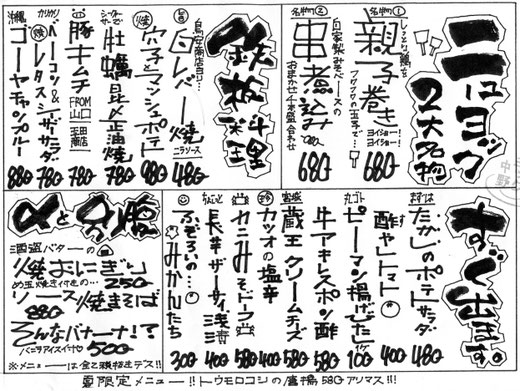 ニはヨック
2大名物
名物①
しっとり鶏を
親子巻き
フワフワの玉子で…
ヨイショー!
ヨイショー!
680
名物②
自家製みそベースの
串煮込み
おまかせ5本盛合せ
680
鉄板料理
白レバー焼
ニラソース
480
焼
穴子とマッシュポテト
980
牡蠣昆〆正油焼
780
豚キムチ
FROM山口
780
カリカリ
ベーコン&レタスシーザーサラダ
780
沖縄
ゴーヤチャンプルー
880
すぐ出ます。
まずは
たかしのポテトサラダ
480
酢ヤトマト
400
丸ゴト
ピーマン揚げたし
1ケ100
牛アキレスポン酢
580
宮城
蔵王クリームチーズ
580
カツオの塩辛
400
カニみそドーフ
580
長芋ザーサイ浅漬
400
ふぞろいの…
みかんたち
300
〆と別腹
酒盗バターの
焼おにぎり
250
め玉焼き付きの…
ソース焼きそば
880
そんなバナーナ!?
バニラアイス付
500
※メニューは全て税抜きデス!!
夏限定メニュー!!トウモロコシの唐揚580アリマス!!!